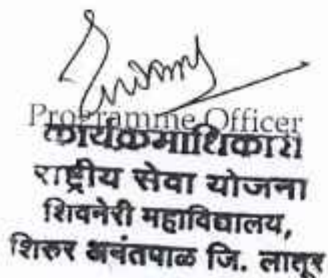 Programme Officer
कार्यक्रमाधिकारी
राष्ट्रीय सेवा योजना
शिवनेरी महाविद्यालय,
शिरुर अनंतपाळ जि. लातूर